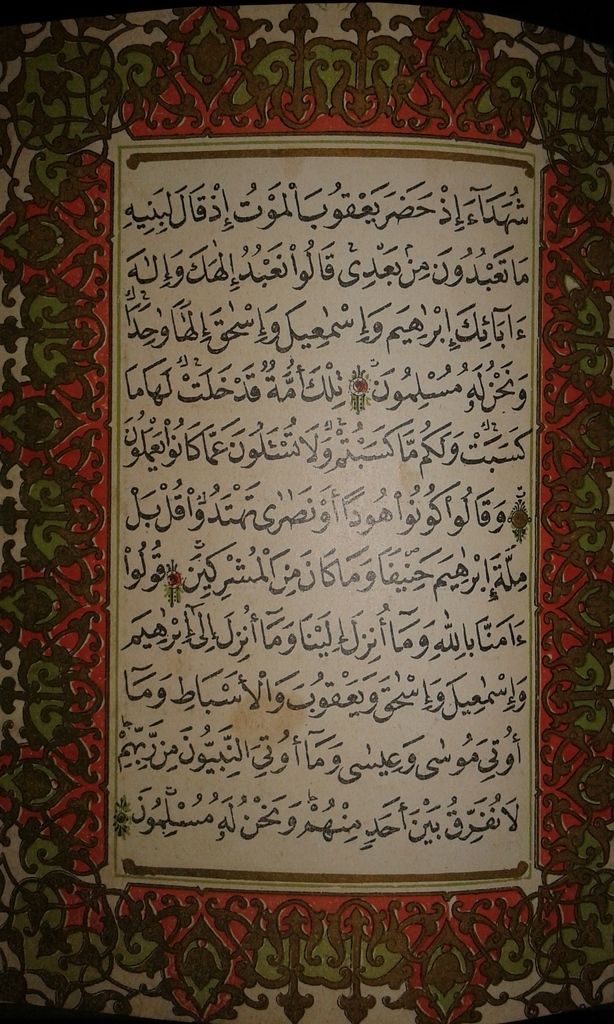 شُهَدَآءَ إِذْ حَضَرَ يَعْقُوبَ الْمَوْتُ إِذْ قَالَ لِبَنِيهِ
مَا تَعْبُدُونَ مِنْ بَعْدِى قَالُوا۟ نَعْبُدُ إِلَٰهَكَ وَإِلَٰهَ
ءَابَآئِكَ إِبْرَٰهِيمَ وَإِسْمَٰعِيلَ وَإِسْحَٰقَ إِلَٰهًا وَٰحِدًا
وَنَحْنُ لَهُۥ مُسْلِمُونَ تِلْكَ أُمَّةٌ قَدْ خَلَتْ لَهَا مَا
كَسَبَتْ وَلَكُم مَّا كَسَبْتُمْ وَلَا تُسْـَٔلُونَ عَمَّا كَانُوا۟ يَعْمَلُونَ
وَقَالُوا۟ كُونُوا۟ هُودًا أَوْ نَصَٰرَىٰ تَهْتَدُوا۟ قُلْ بَلْ
مِلَّةَ إِبْرَٰهِيمَ حَنِيفًا وَمَا كَانَ مِنَ الْمُشْرِكِينَ قُولُوٓا۟
ءَامَنَّا بِاللَّهِ وَمَآ أُنزِلَ إِلَيْنَا وَمَآ أُنزِلَ إِلَىٰٓ إِبْرَٰهِيمَ
وَإِسْمَٰعِيلَ وَإِسْحَٰقَ وَيَعْقُوبَ وَالْأَسْبَاطِ وَمَآ
أُوتِىَ مُوسَىٰ وَعِيسَىٰ وَمَآ أُوتِىَ النَّبِيُّونَ مِن رَّبِّهِمْ
لَا نُفَرِّقُ بَيْنَ أَحَدٍ مِّنْهُمْ وَنَحْنُ لَهُۥ مُسْلِمُونَ